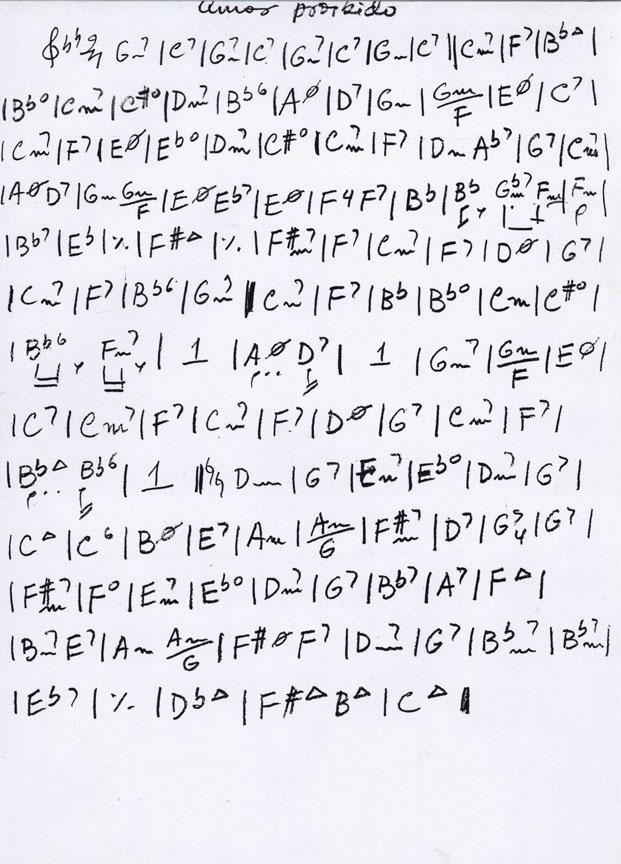 Amor proibido
𝄞♭♭ 2/4 Gm7 | C7 | Gm7 | C7 | Gm7 | C7 | Gm | C7 || Cm7 | F7 | BbΔ |
| Bbº | Cm7 | C#º | Dm7 | Bb6 | AØ | D7 | Gm | Gm/F | EØ | C7 |
| Cm7 | F7 | EØ | Ebº | Dm7 | C#º | Cm7 | F7 | Dm Ab7 | G7 | Cm7 |
| AØ D7 | Gm Gm/F | EØ Eb7 | EØ | F4 F7 | Bb | Bb Gbm7 Fm | Fm |
| Bb7 | Eb | ٪ | F#Δ | ٪ | F#m7 | F7 | Cm7 | F7 | DØ | G7 |
| Cm7 | F7 | Bb6 | Gm7 || Cm7 | F7 | Bb | Bbº | Cm | C#º |
| Bb6 Fm7 | 1 | AØ D7 | 1 | Gm7 | Gm/F | EØ |
| C7 | Cm7 | F7 | Cm7 | F7 | DØ | G7 | Cm7 | F7 |
| BbΔ Bb6 | 1 || ♮♮ Dm | G7 | Em7 | Ebº | Dm7 | G7 |
| CΔ | C6 | BØ | E7 | Am | Am/G | F#m7 | D7 | G7 4 | G7 |
| F#m7 | Fº | Em7 | Ebº | Dm7 | G7 | Bb7 | A7 | FΔ |
| Bm7 E7 | Am Am/G | F#Ø F7 | Dm7 | G7 | Bbm7 | Bbm7 |
| Eb7 | ٪ | DbΔ | F#Δ BΔ | CΔ ||